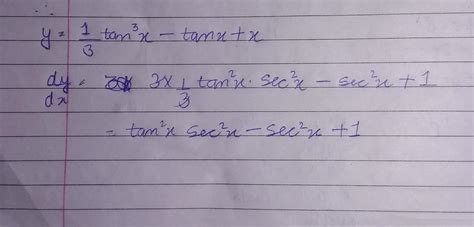 ∴
y = 1/3 tan³x − tanx + x
dy/dx = 3 × 1/3 tan²x · sec²x − sec²x + 1
= tan²x sec²x − sec²x + 1